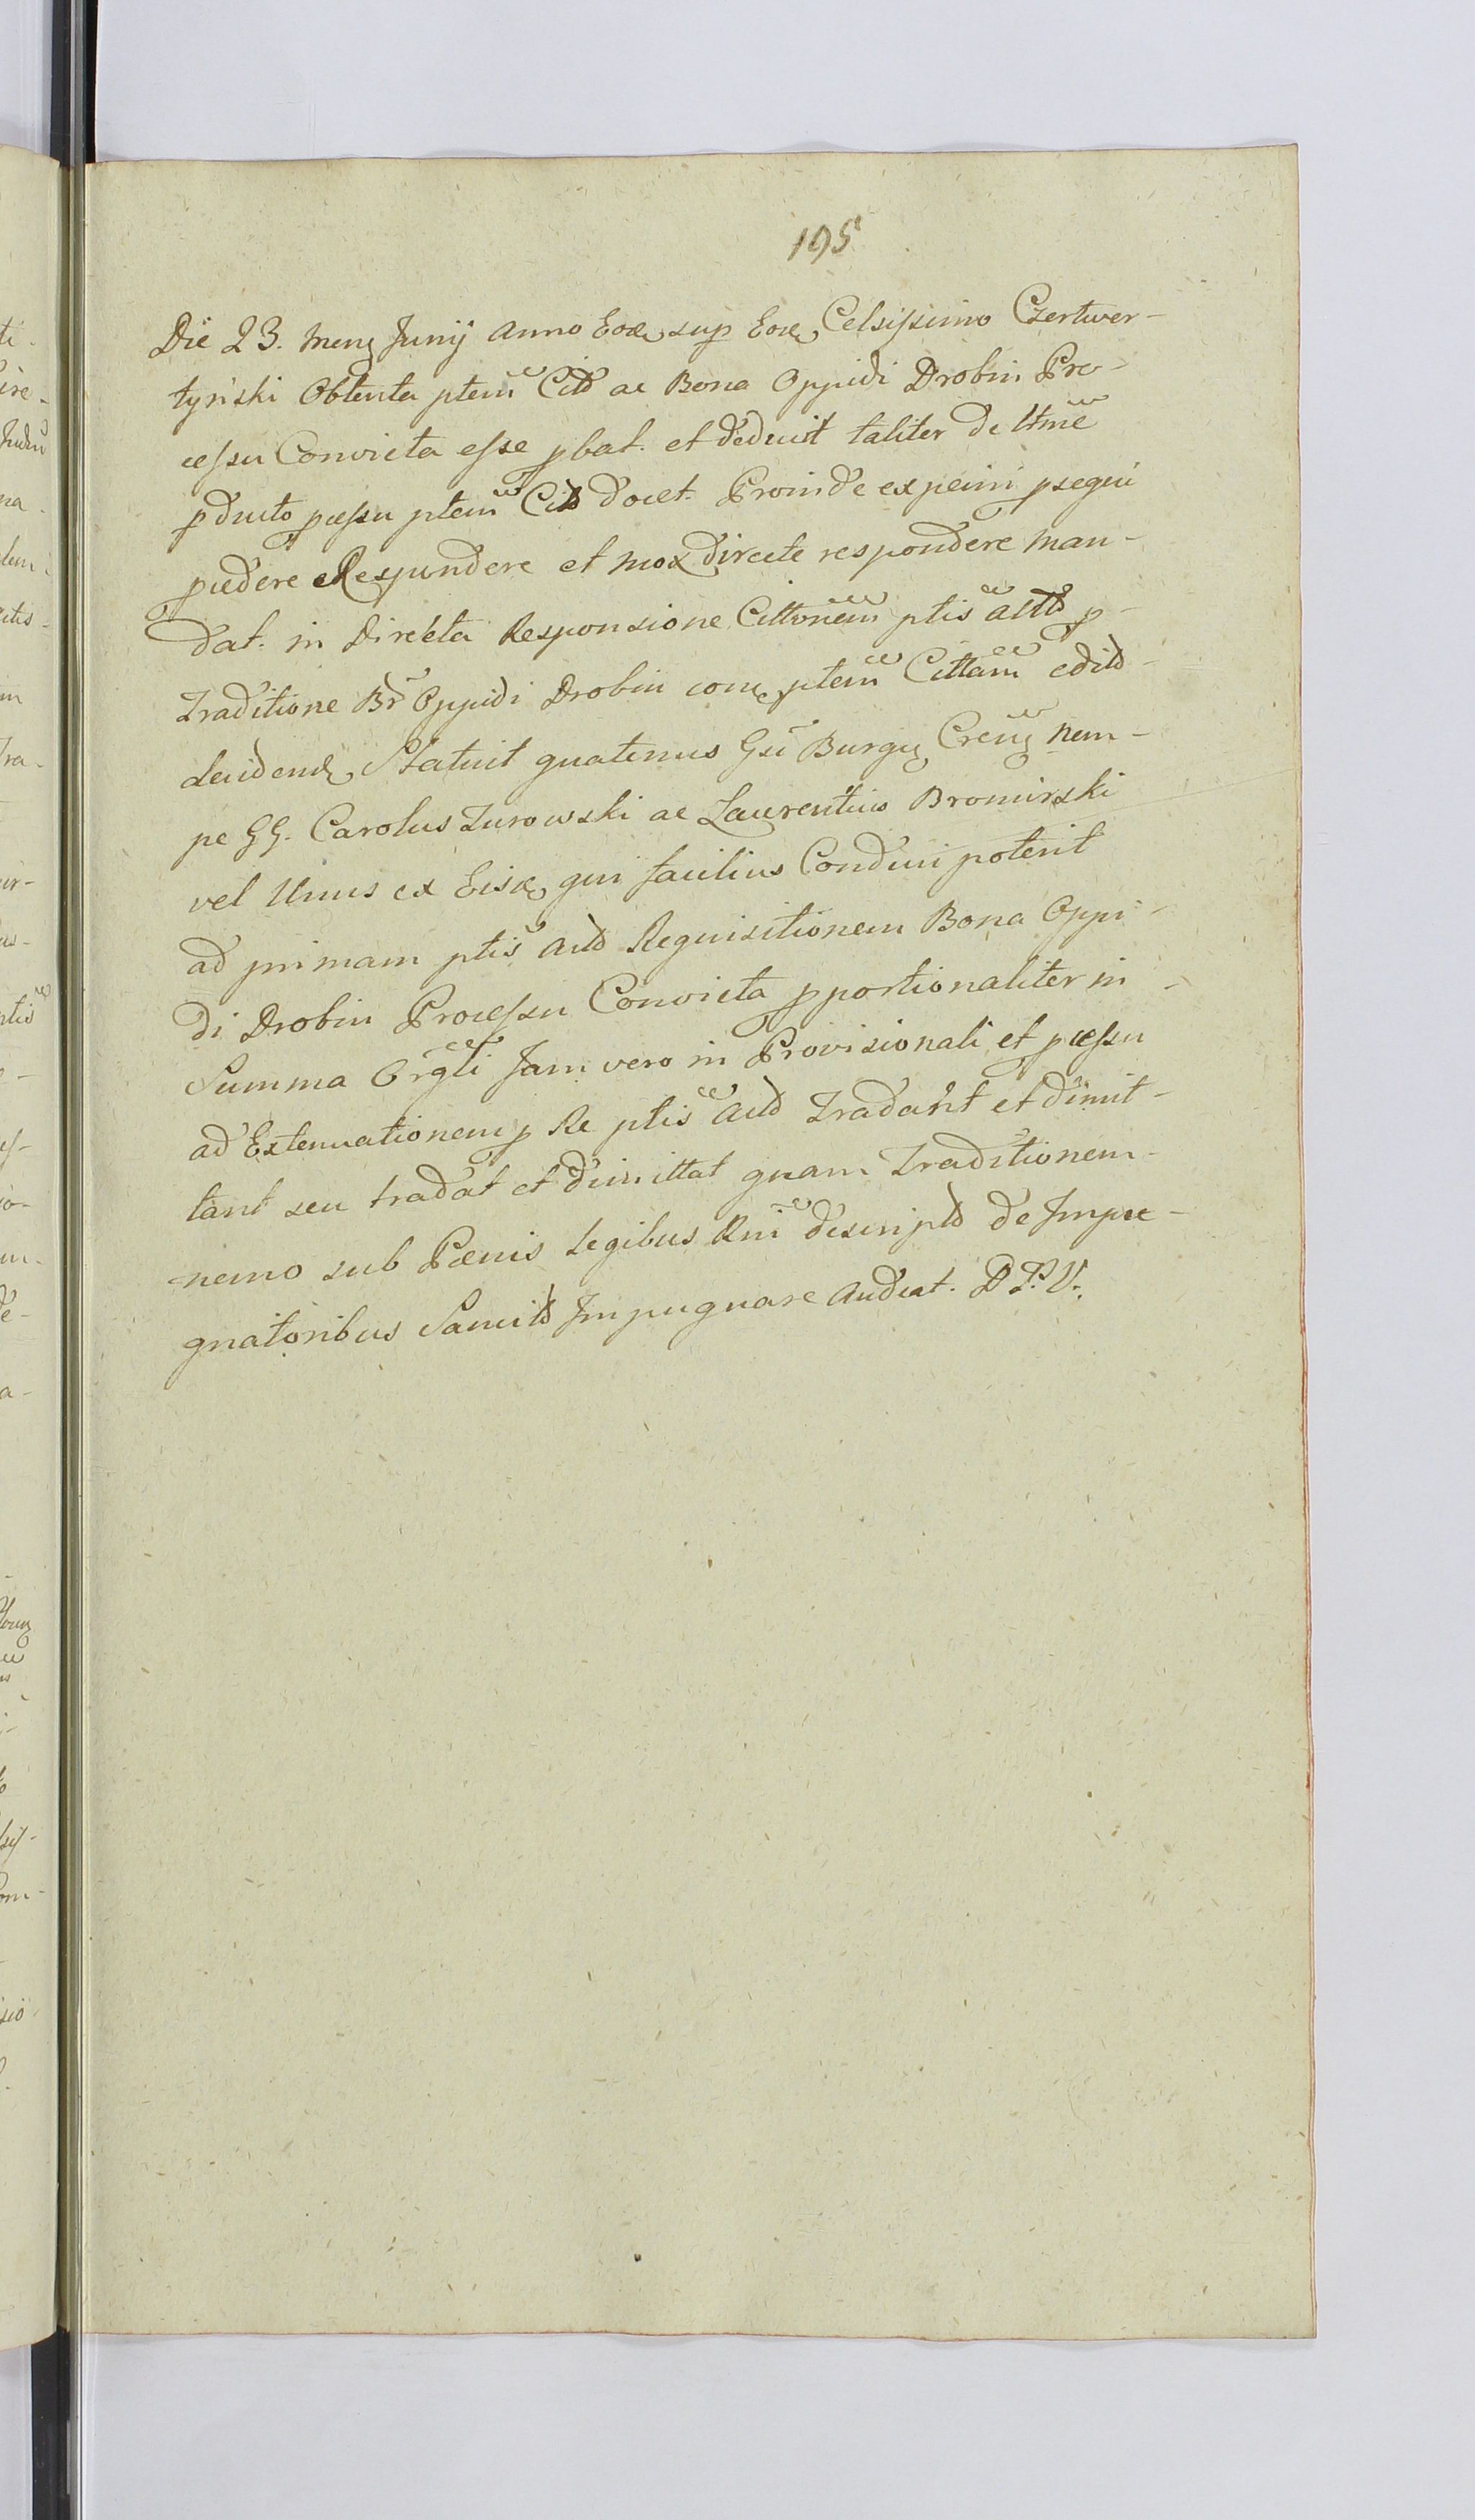 195
Die 23. Mens Junij Anno Eod. sup Eod. Celsissimo Czertwer-
tyński Obtenta ptem Citt ac Bona Oppidi Drobin Pro-
cessu Convicta esse pbat. et deduxit taliter de ltme
pducto pcessu ptem Citt docet. Proinde expenni psequi
pcedere Respondere et mox directe respondere Man-
dat. in Directa Responsione Cittonem ptis actt p
Traditione Br Oppidi Drobin com ptem Cittam edit
decidend, Statuit quatenus Gsi Burg Cren Nem-
pe GG. Carolus Zurowski ac Laurentius Bromirski
vel Unus ex Eisd, qui facilius Conduci poterit
ad primam ptis Act Requisitionem Bona Oppi-
di Drobin Processu Convicta pportionaliter in
Summa Orgli Jam vero in Provisionali et pcessu
ad Extenuationem p Re ptis Act Tradant et dimit-
tant seu tradat et dimittat quam Traditionem
nemo sub Pœnis Legibus Rni descript de Impu-
gnatoribus Sancit Impugnare Audeat. D P. V.